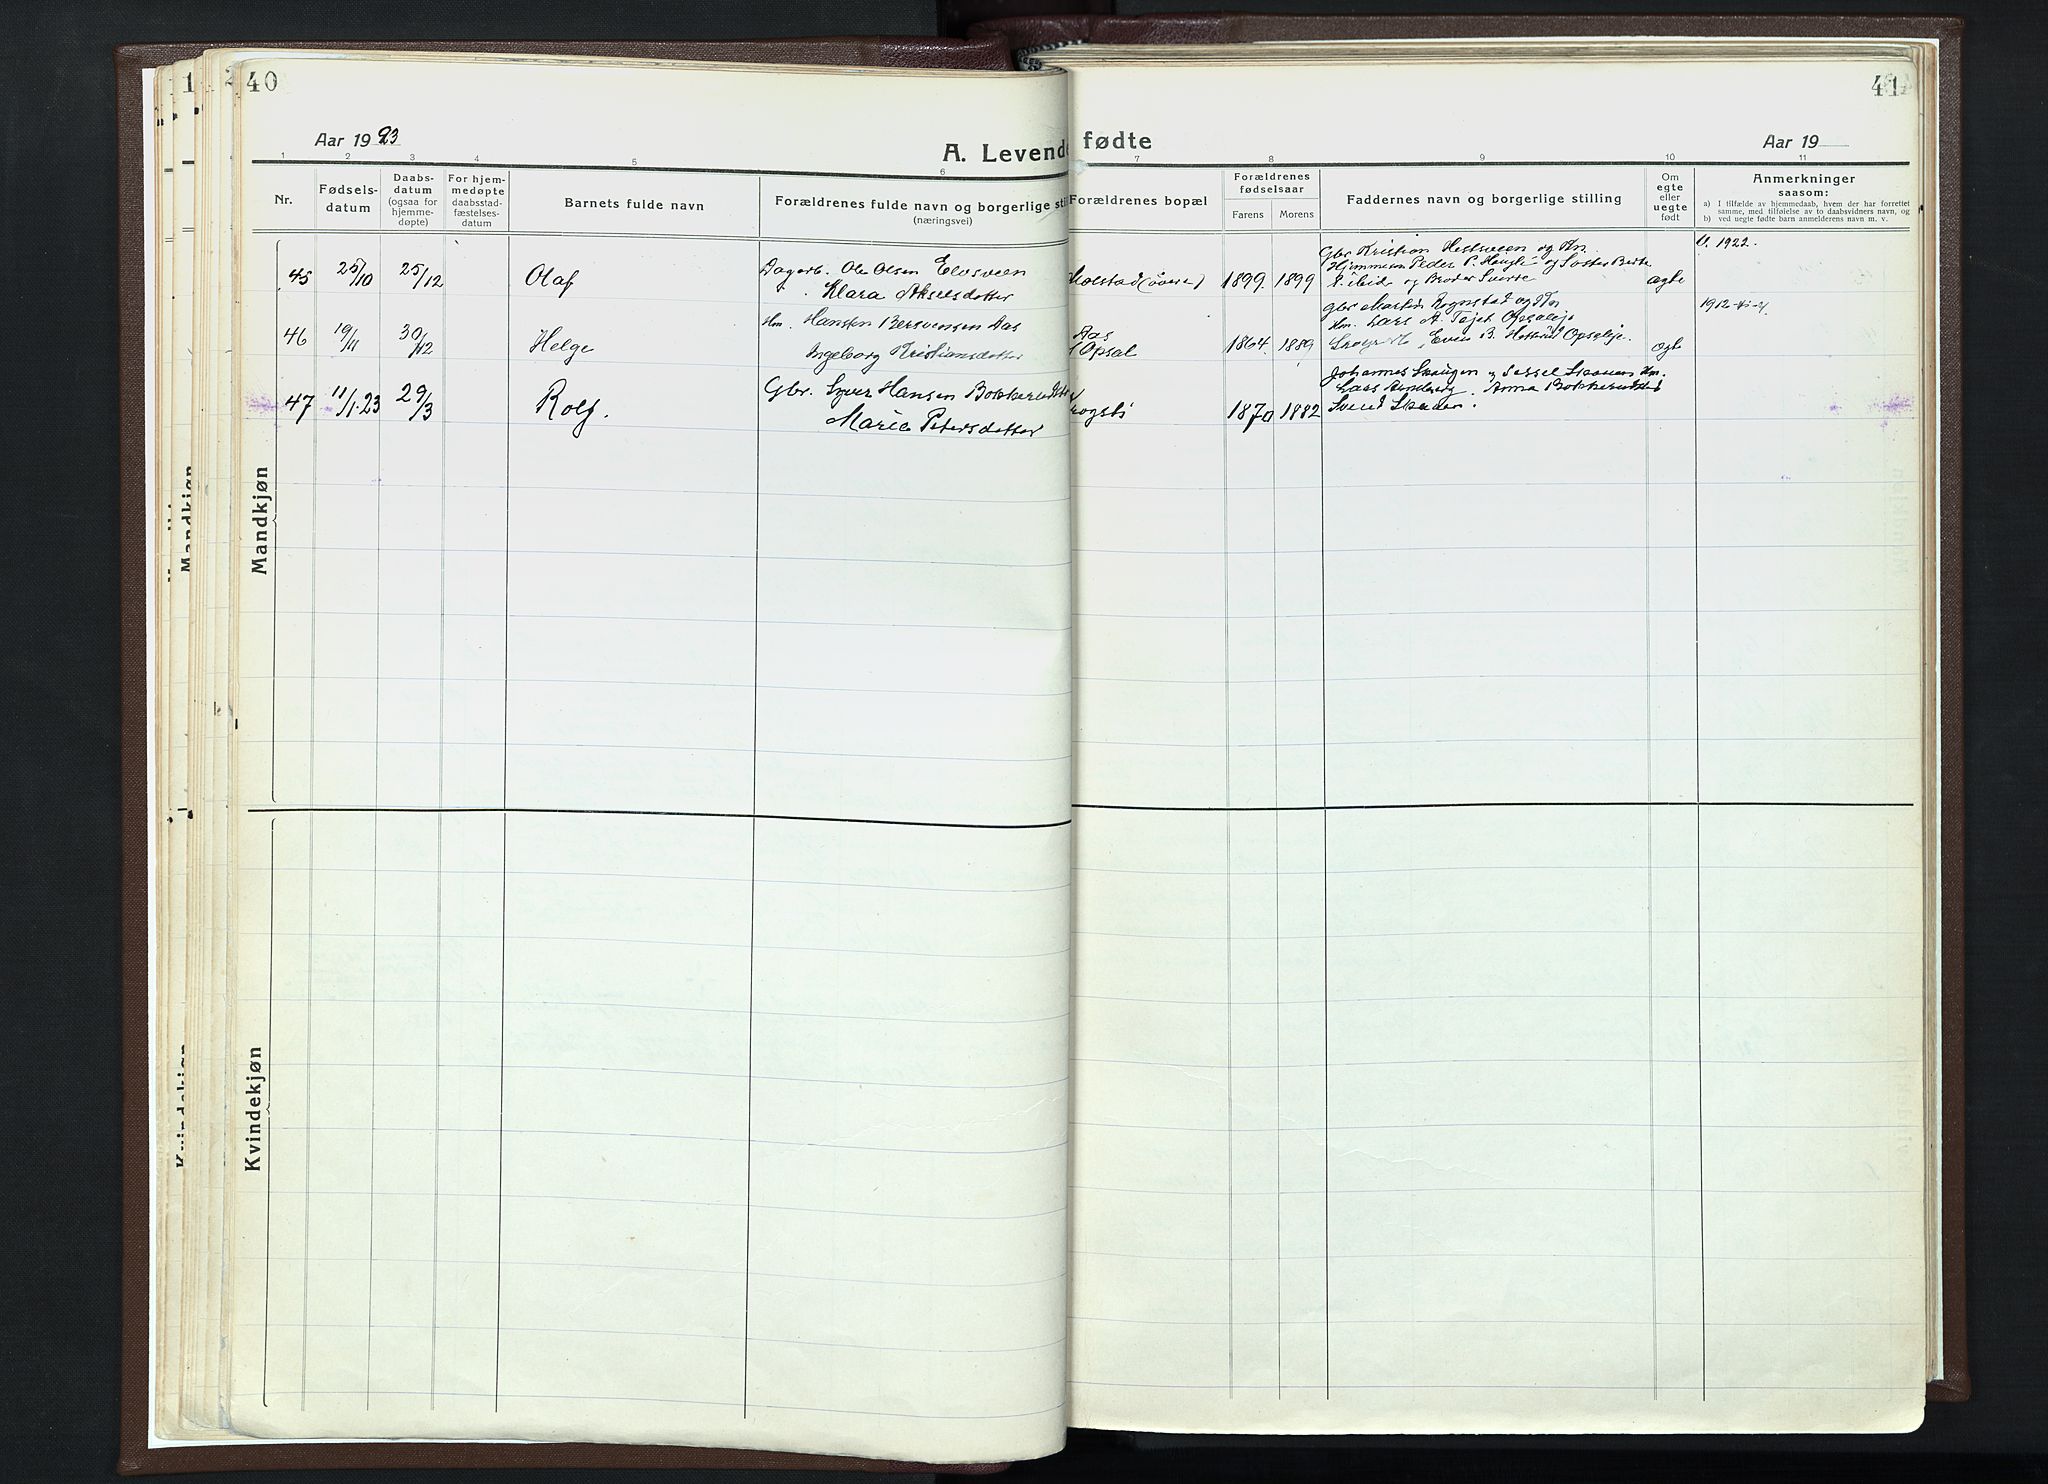 40
41
Aar 1923
A. Levende fødte
Aar 19
1 2 3 4 5 6 7 8 9 10 11
Nr.
Fødsels-
datum
Daabs-
datum
(ogsaa for
hjemme-
døpte)
For hjem-
medøpte
daabsstad-
fæstelses-
datum
Barnets fulde navn
Forældrenes fulde navn og borgerlige stil
(næringsvei)
Forældrenes bopæl
Forældrenes
fødselsaar
Farens Morens
Faddernes navn og borgerlige stilling
Om
egte
eller
uegte
født
Anmerkninger
saasom:
a) I tilfælde av hjemmedaab, hvem der har forrettet
samme, med tilføielse av to daabsvidners navn, og
b) ved uegte fødte barn anmelderens navn m. v.
Mandkjøn
45 25/10 25/12 Olaf
Dagarb. Ole Olsen Elvsveen
Klara Akselsdatter
Molstad (övre) 1899. 1899
Gbr Kristian Hestsveen og Kn.
Hjemmesn Peder P. Haugli og Søster Berte
og Broder Sverre
ægte
V. 1922.
46 19/11 30/12 Helge
Hm. Hansten Bersvensen Aas
Ingeborg Kristiansdatter
Aas
Opsal 1864. 1889
Gbr Martin Rognstad og Kn
Hm. Lars A. Tøjet Opsaleje
Even B. Opseleje.
ægte
1912
47 11/1.23 29/3 Rolf.
Gbr. Syver Hansen
Marie Petersdatter
rogsti 1870 1882
Johannes Skaugen og Sissel Skaugen Hm.
Lars Anna
Svend
Kvindekjøn